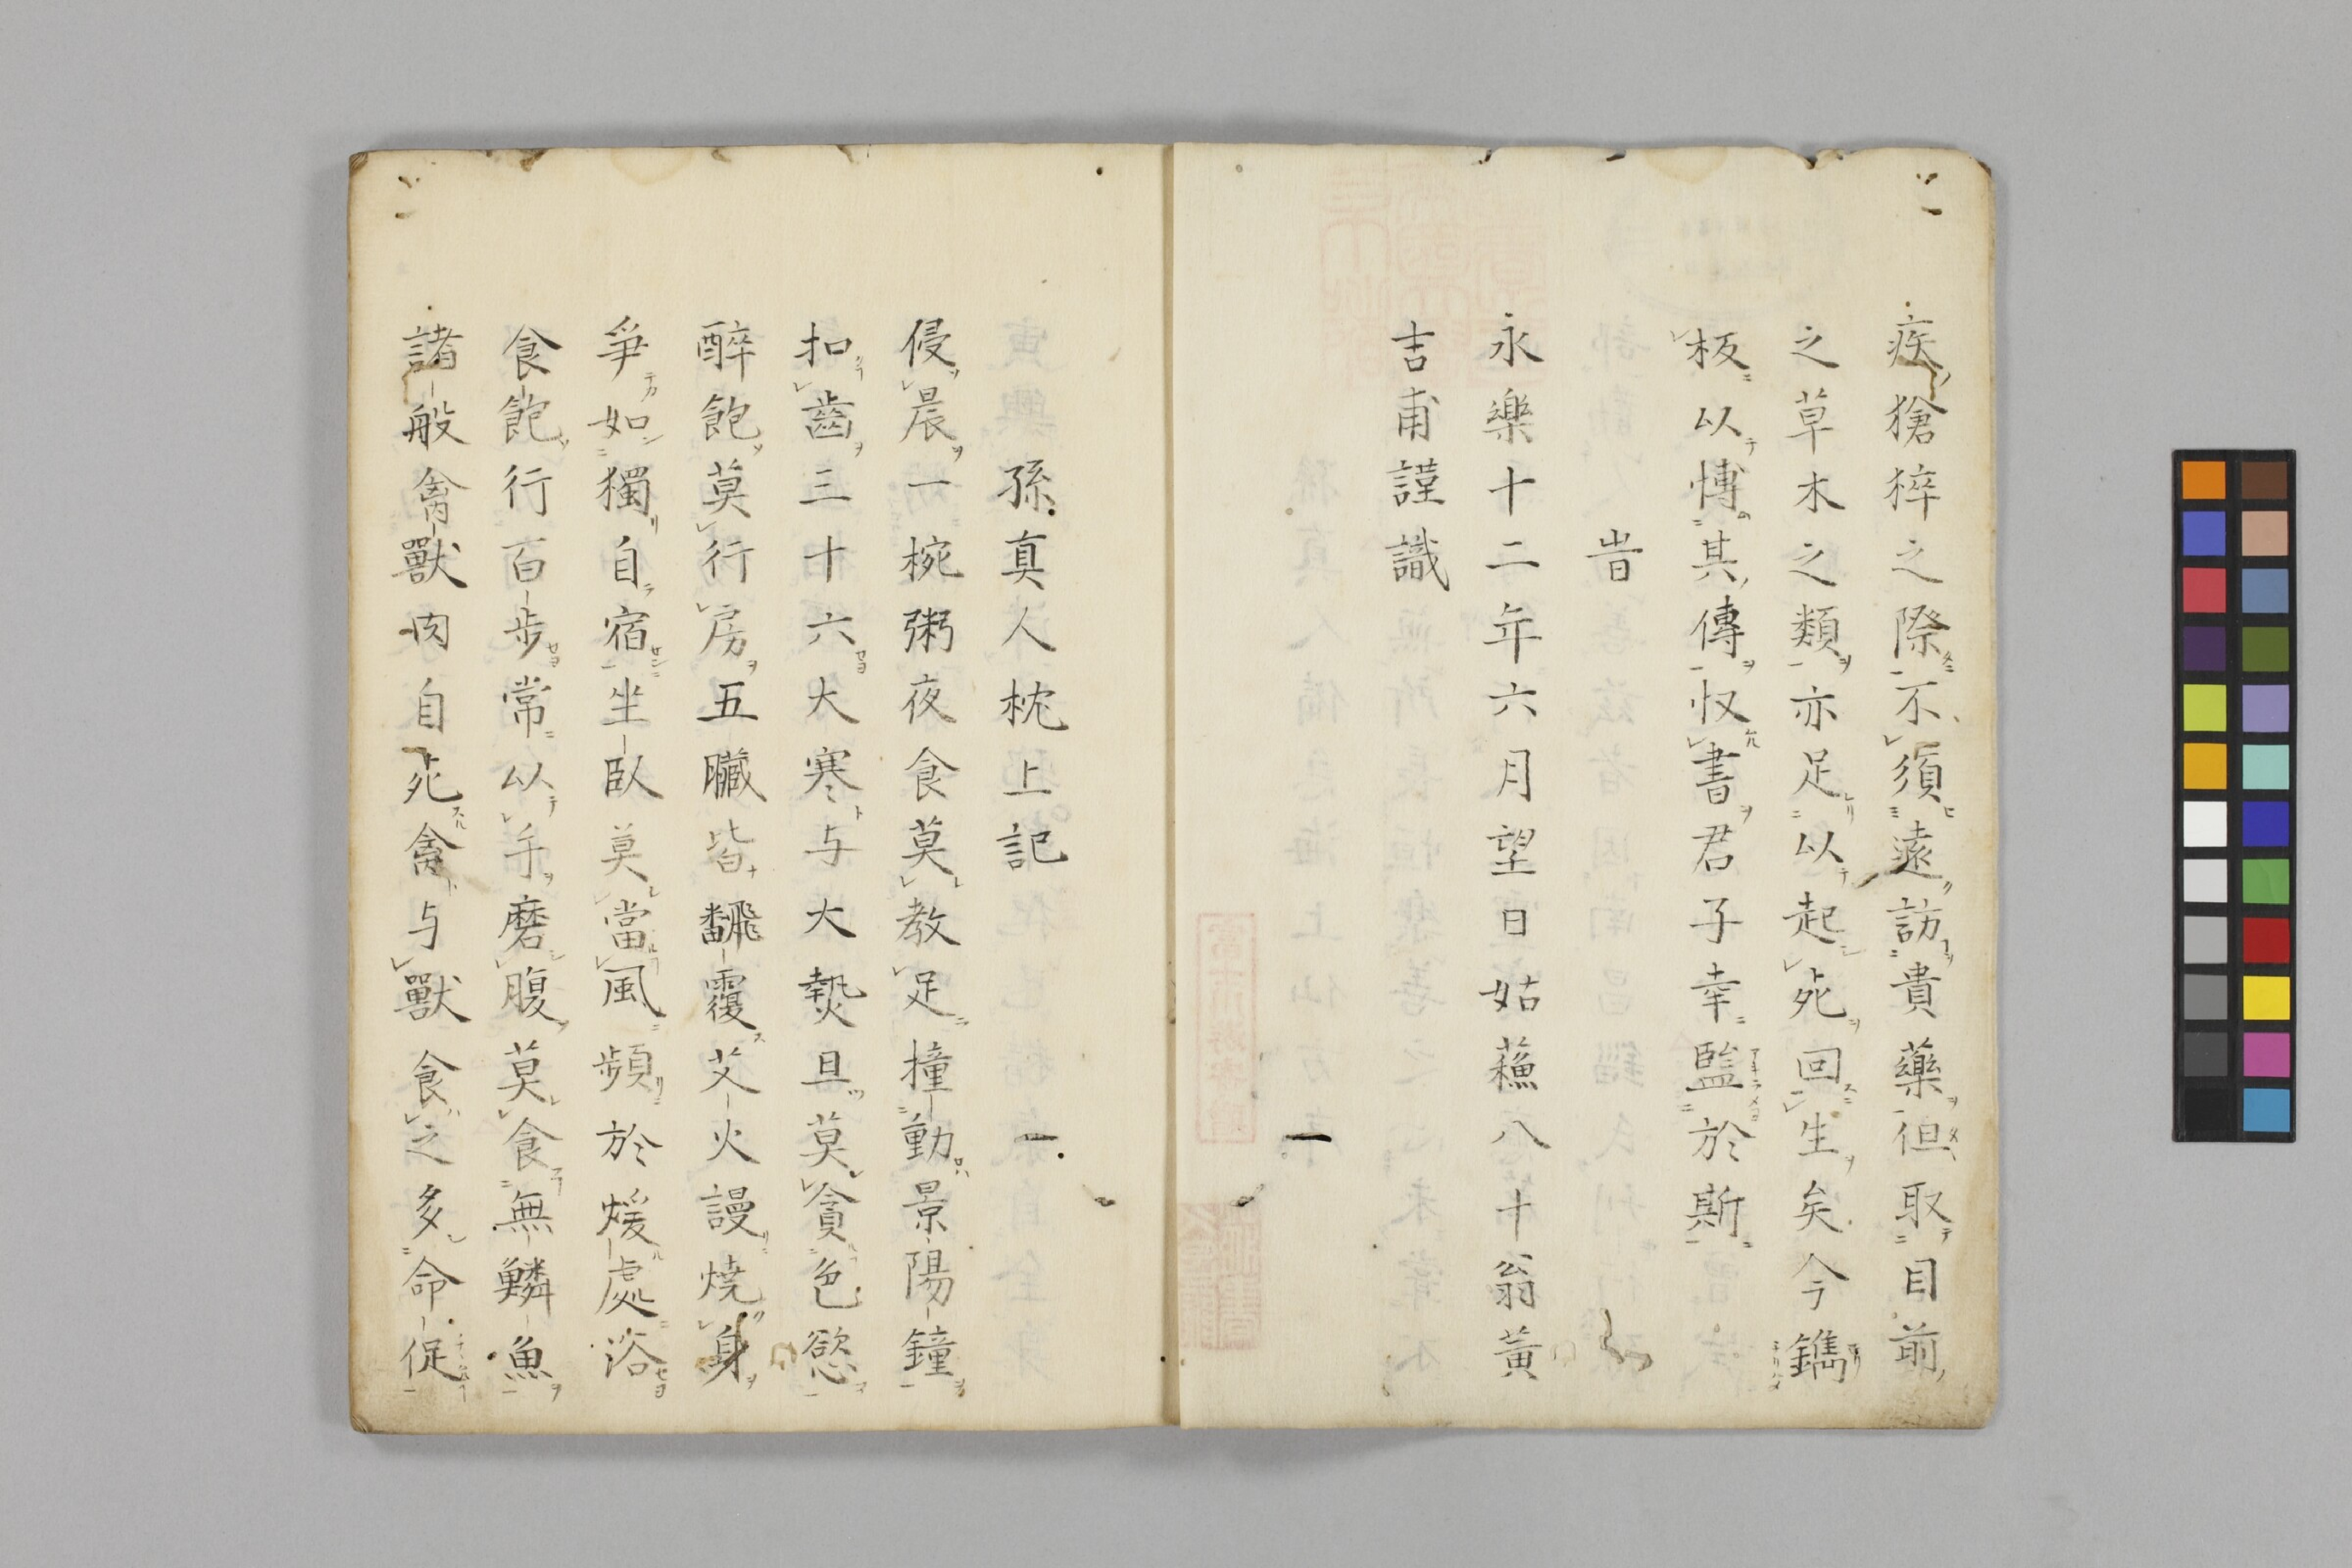 疾獊猝之際不須遠訪貴藥但取目前
之草木之類亦足以起死回生矣今鐫
板以慱其傳㕝書君子幸監於斯
旹
永樂十二年六月望日姑蘓八十翁黃
吉甫謹識
孫真人枕上記
侵晨一椀粥夜食莫教足撞動景陽鐘
扣齒三十六大寒与大熱且莫貪色慾
醉飽莫行房五臟皆飜覆艾火謾燒身
爭如獨自宿坐臥莫當風頻於煖處浴
食飽行百步常以手磨腹莫食無鱗魚
諸般禽獸肉自死禽与獸食之多命促